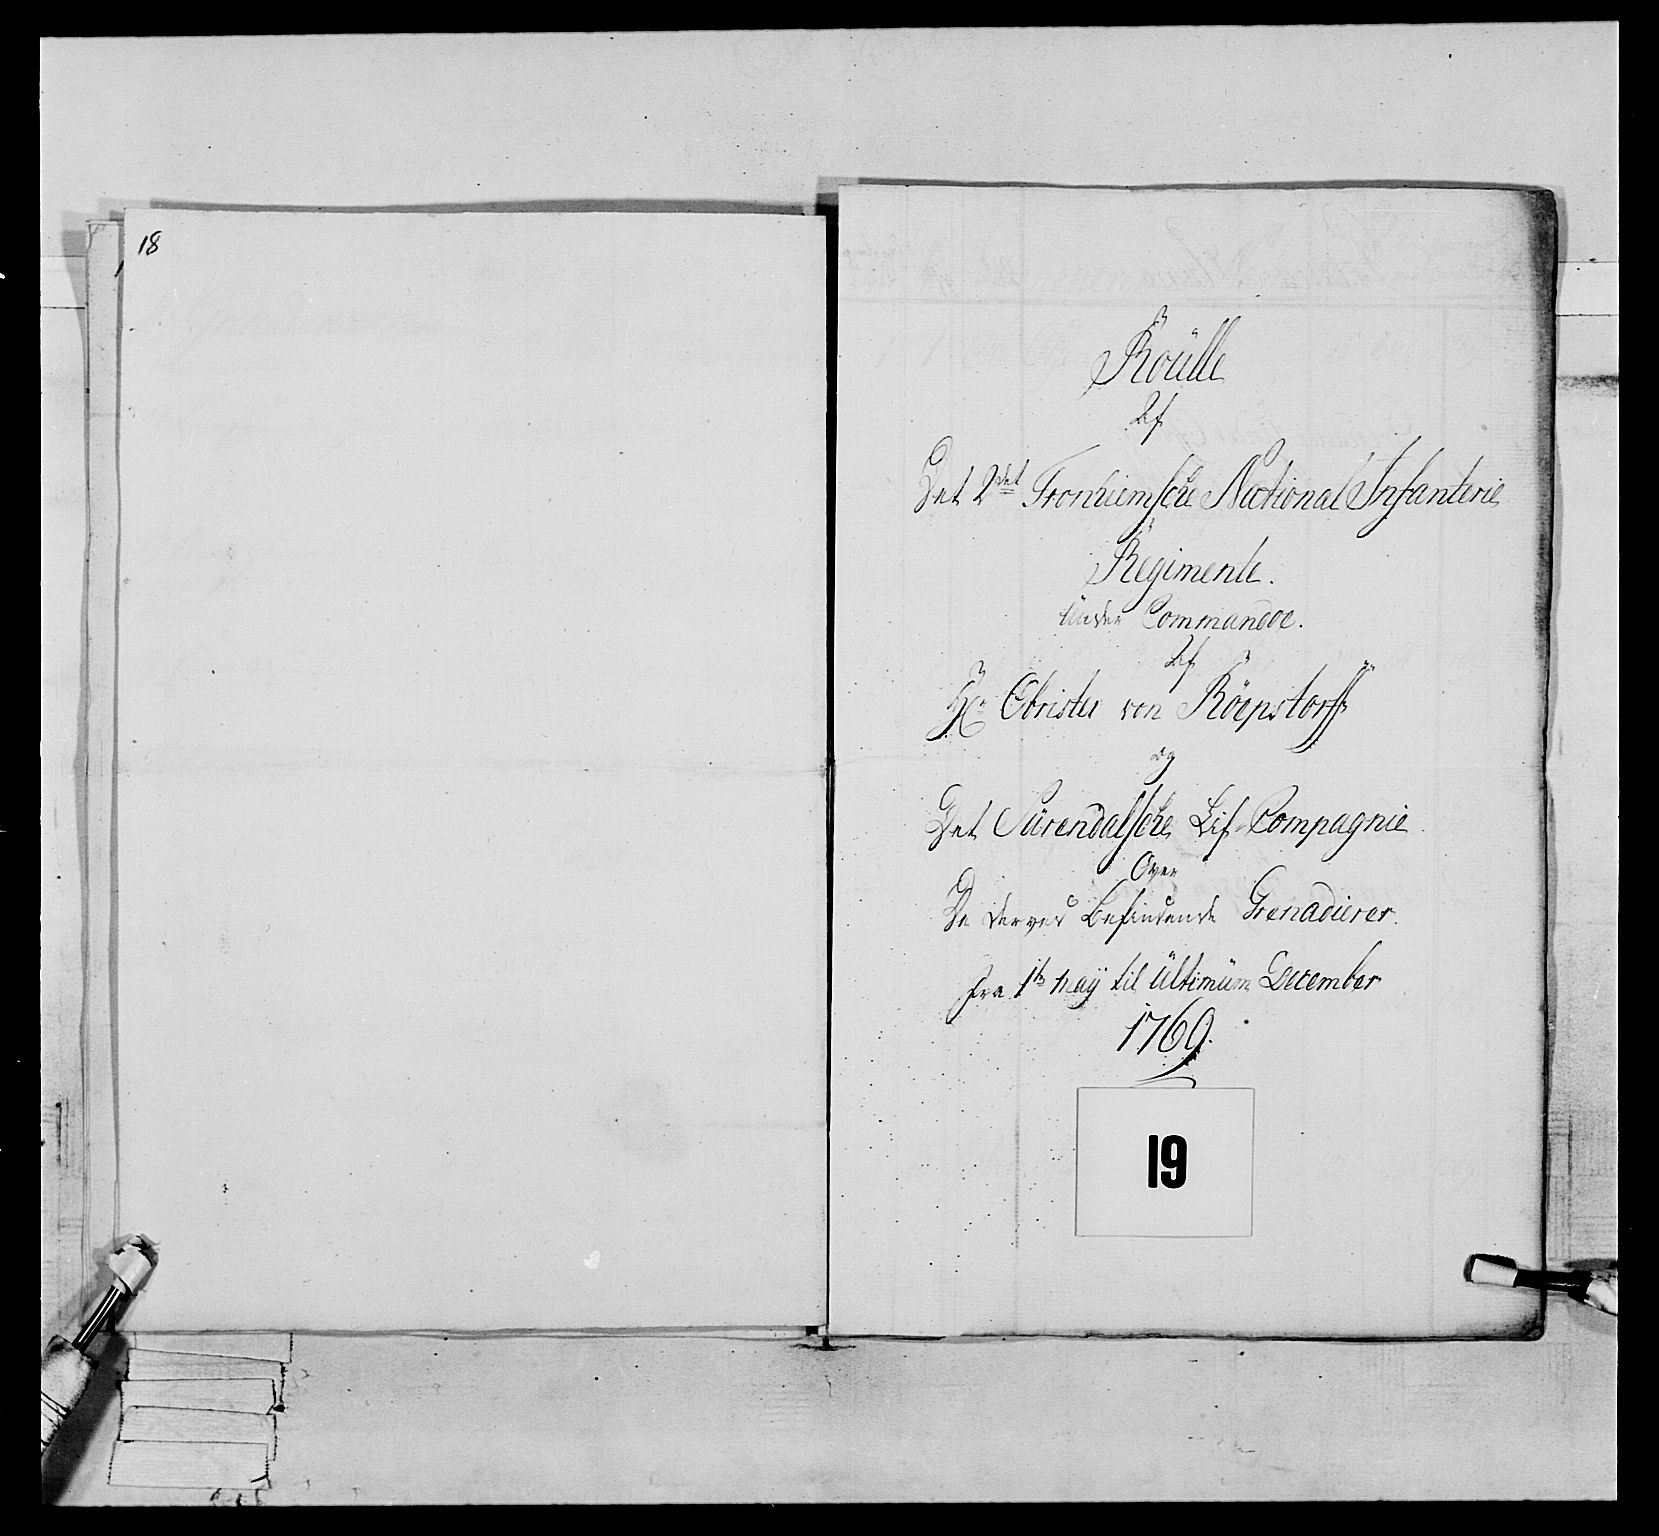 18
Roülle
Af
Det 2det Tronhiemsche National Infanterie
Regimente.
Ünder Commando.
Af
Hr Obrister von Röepstorff
og
Det Sürendalsche Lif-Compagnie
Over
De derved Befindende Grenadierer.
fra 1te maÿ til Ultimüm December
1769.
19